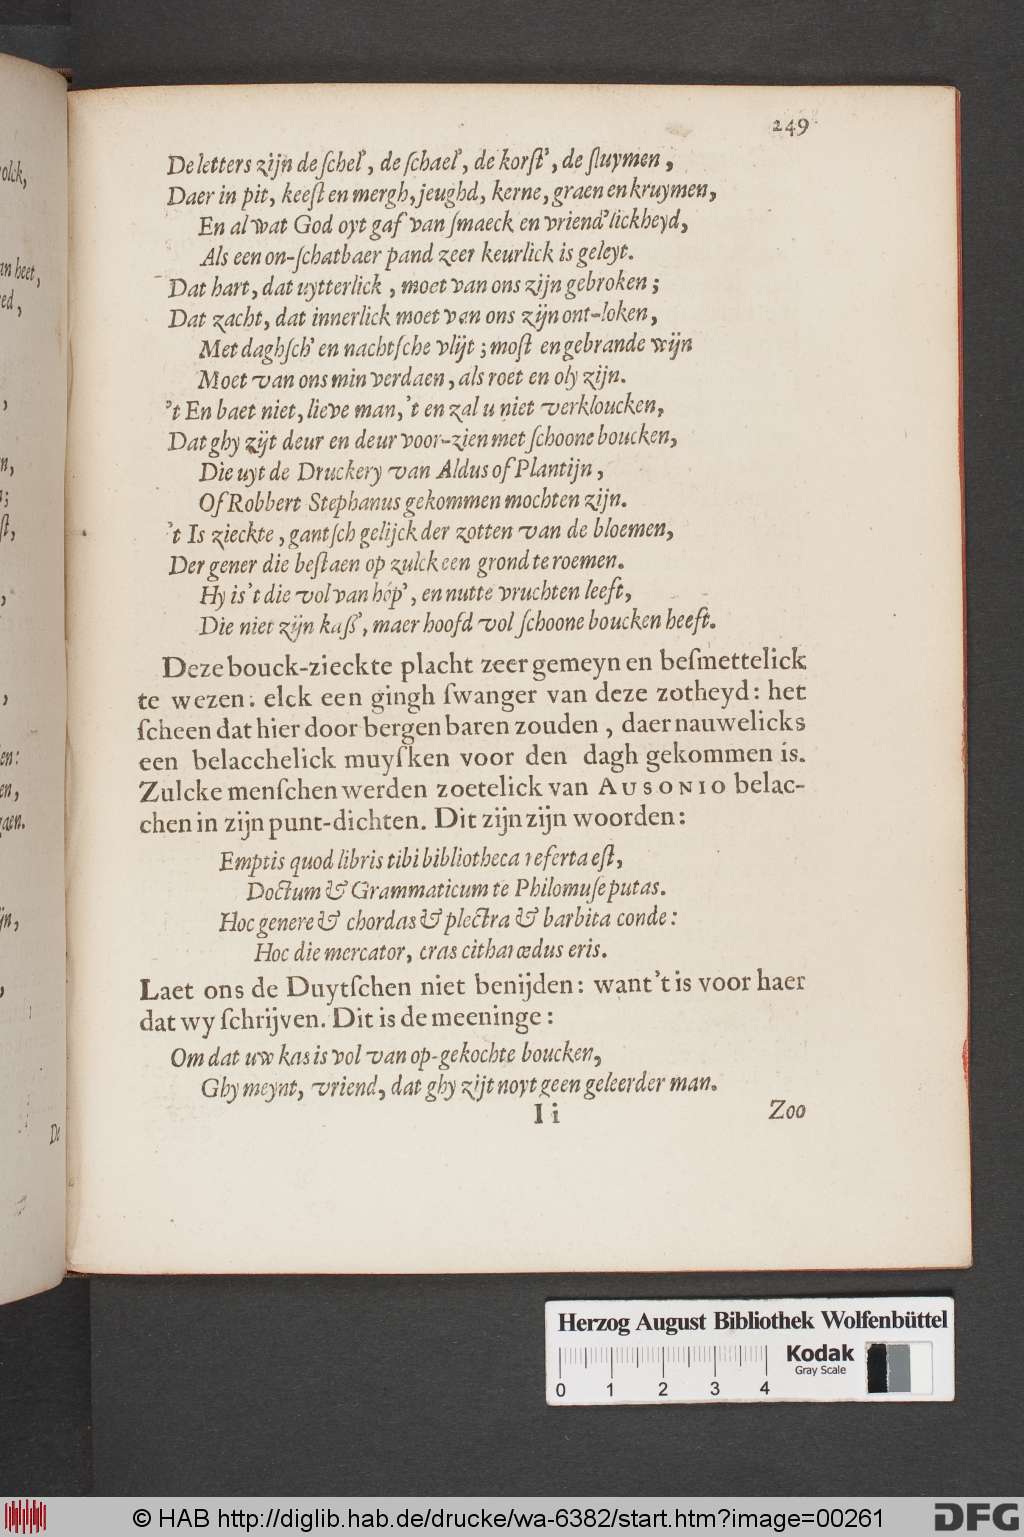 249
De letters zijn de ſchel', de ſchael', de korſt', de ſluymen,
Daer in pit, keeſt en mergh, jeughd, kerne, graen en kruymen,
En al wat God oyt gaf van ſmaeck en vriend'lickheyd,
Als een on-ſchatbaer pand zeer keurlick is geleyt.
Dat hart, dat uytterlick, moet van ons zijn gebroken;
Dat zacht, dat innerlick moet van ons zijn ont-loken,
Met daghſch' en nachtſche vlijt; moſt en gebrande wijn
Moet van ons min verdaen, als roet en oly zijn.
't En baet niet, lieve man, 't en zal u niet verkloucken,
Dat ghy zijt deur en deur voor-zien met ſchoone boucken,
Die uyt de Druckery van Aldus of Plantijn,
Of Robbert Stephanus gekommen mochten zijn.
't Is zieckte, gantſch gelijck der zotten van de bloemen,
Der gener die beſtaen op zulck een grond te roemen.
Hy is 't die vol van hóp', en nutte vruchten leeft,
Die niet zijn kaſſ', maer hoofd vol ſchoone boucken heeft.
Deze bouck-zieckte placht zeer gemeyn en beſmettelick
te wezen: elck een gingh ſwanger van deze zotheyd: het
ſcheen dat hier door bergen baren zouden, daer nauwelicks
een belacchelick muyſken voor den dagh gekommen is.
Zulcke menſchen werden zoetelick van AUSONIO belac-
chen in zijn punt-dichten. Dit zijn zijn woorden:
Emptis quod libris tibi bibliotheca referta eſt,
Doctum & Grammaticum te Philomuſe putas.
Hoc genere & chordas & plectra & barbita conde:
Hoc die mercator, cras citharœdus eris.
Laet ons de Duytſchen niet benijden: want 't is voor haer
dat wy ſchrijven. Dit is de meeninge:
Om dat uw kas is vol van op-gekochte boucken,
Ghy meynt, vriend, dat ghy zijt noyt geen geleerder man.
Ii
Zoo
olck,
an heet,
De
Herzog August Bibliothek Wolfenbüttel
Kodak
Gray Scale
0 1 2 3 4
© HAB http://diglib.hab.de/drucke/wa-6382/start.htm?image=00261
DFG